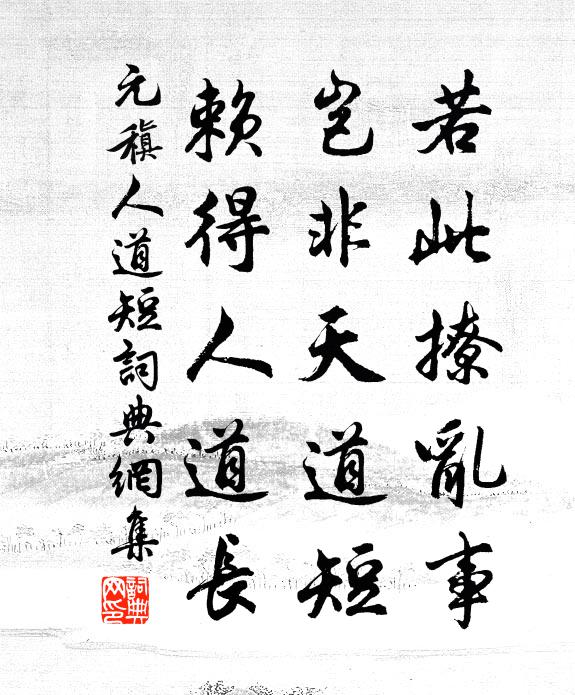 若此撩亂事
豈非天道短
賴得人道長
元稹人道短詞典網集
詞典
网印